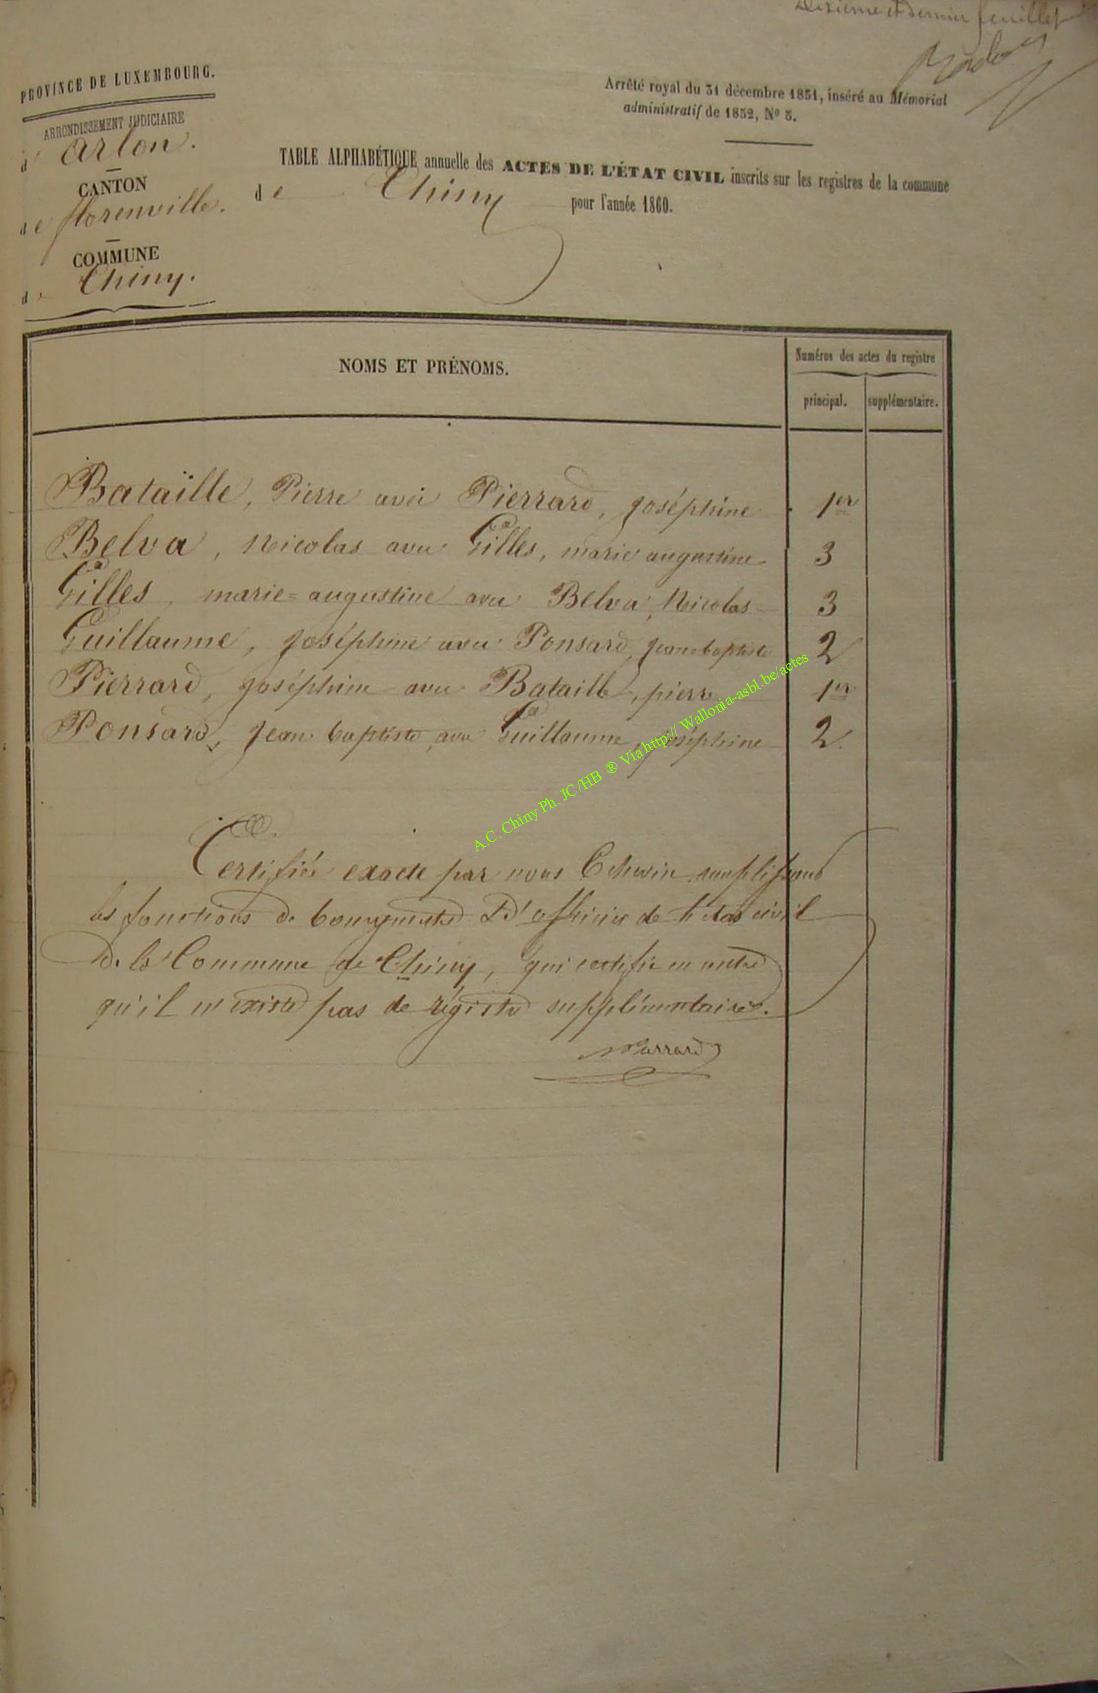 Dixième et dernier feuillet
PROVINCE DE LUXEMBOURG.
ARRONDISSEMENT JUDICIAIRE
d' arlon.
CANTON
de florenville.
COMMUNE
de Chiny.
Arrêté royal du 31 décembre 1851, inséré au Mémorial
administratif de 1852, No 3.
TABLE ALPHABÉTIQUE annuelle des ACTES DE L'ÉTAT CIVIL inscrits sur les registres de la commune
de Chiny pour l'année 1860.
NOMS ET PRÉNOMS.
Numéros des actes du registre
principal. supplémentaire.
Bataille, Pierre avec Pierrard, joséphine 1er
Belva, Nicolas avec Gilles, marie augustine 3
Gilles, marie=augustine avec Belva, Nicolas 3
Guillaume, joséphine avec Ponsard, jean baptiste 2
Pierrard, joséphine avec Bataille, pierre 1er
Ponsard, jean baptiste avec Guillaume, joséphine 2.
A.C. Chiny Ph. JC/HB ® Via http://Wallonia-asbl.be/actes
Certifiée exacte par nous Echevin remplissant
les fonctions de bourgmestre D'officier de l'état civil
De la Commune de Chiny, qui certifie en outre
qu'il n'existe pas de régistre supplémentaire.